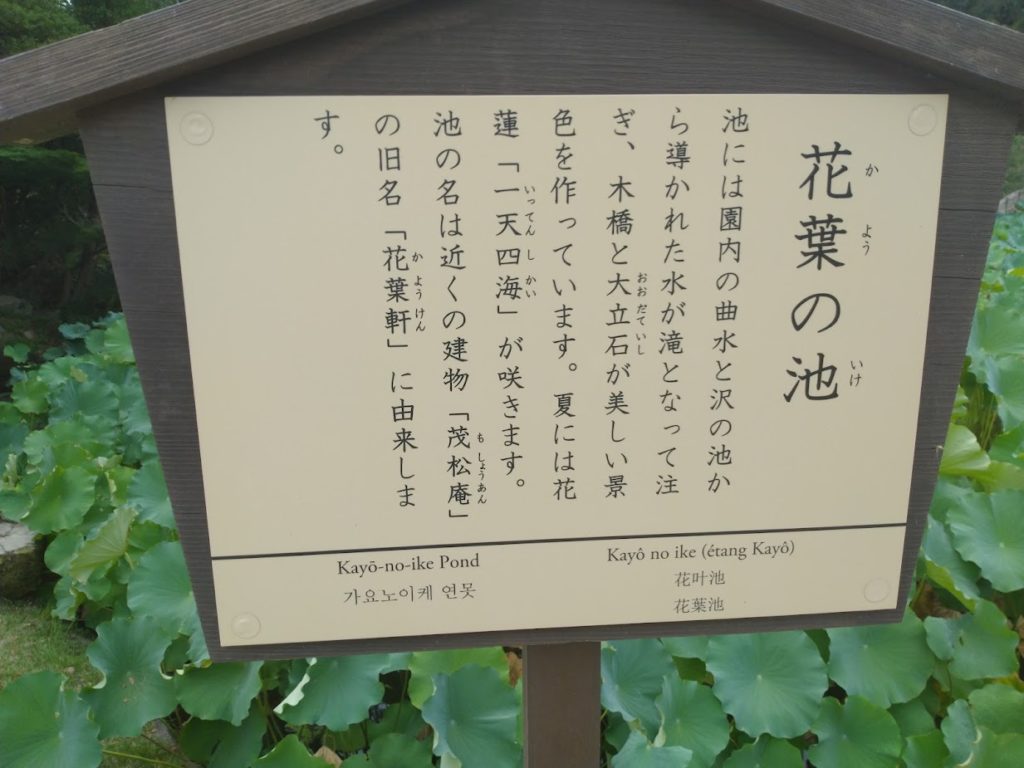 花葉の池
かよう いけ
池には園内の曲水と沢の池か
ら導かれた水が滝となって注
ぎ、木橋と大立石が美しい景
おおだていし
色を作っています。夏には花
蓮「一天四海」が咲きます。
いってんしかい
池の名は近くの建物「茂松庵」
もしょうあん
の旧名「花葉軒」に由来しま
かようけん
す。
Kayō-no-ike Pond
가요노이케 연못
Kayô no ike (étang Kayô)
花叶池
花葉池